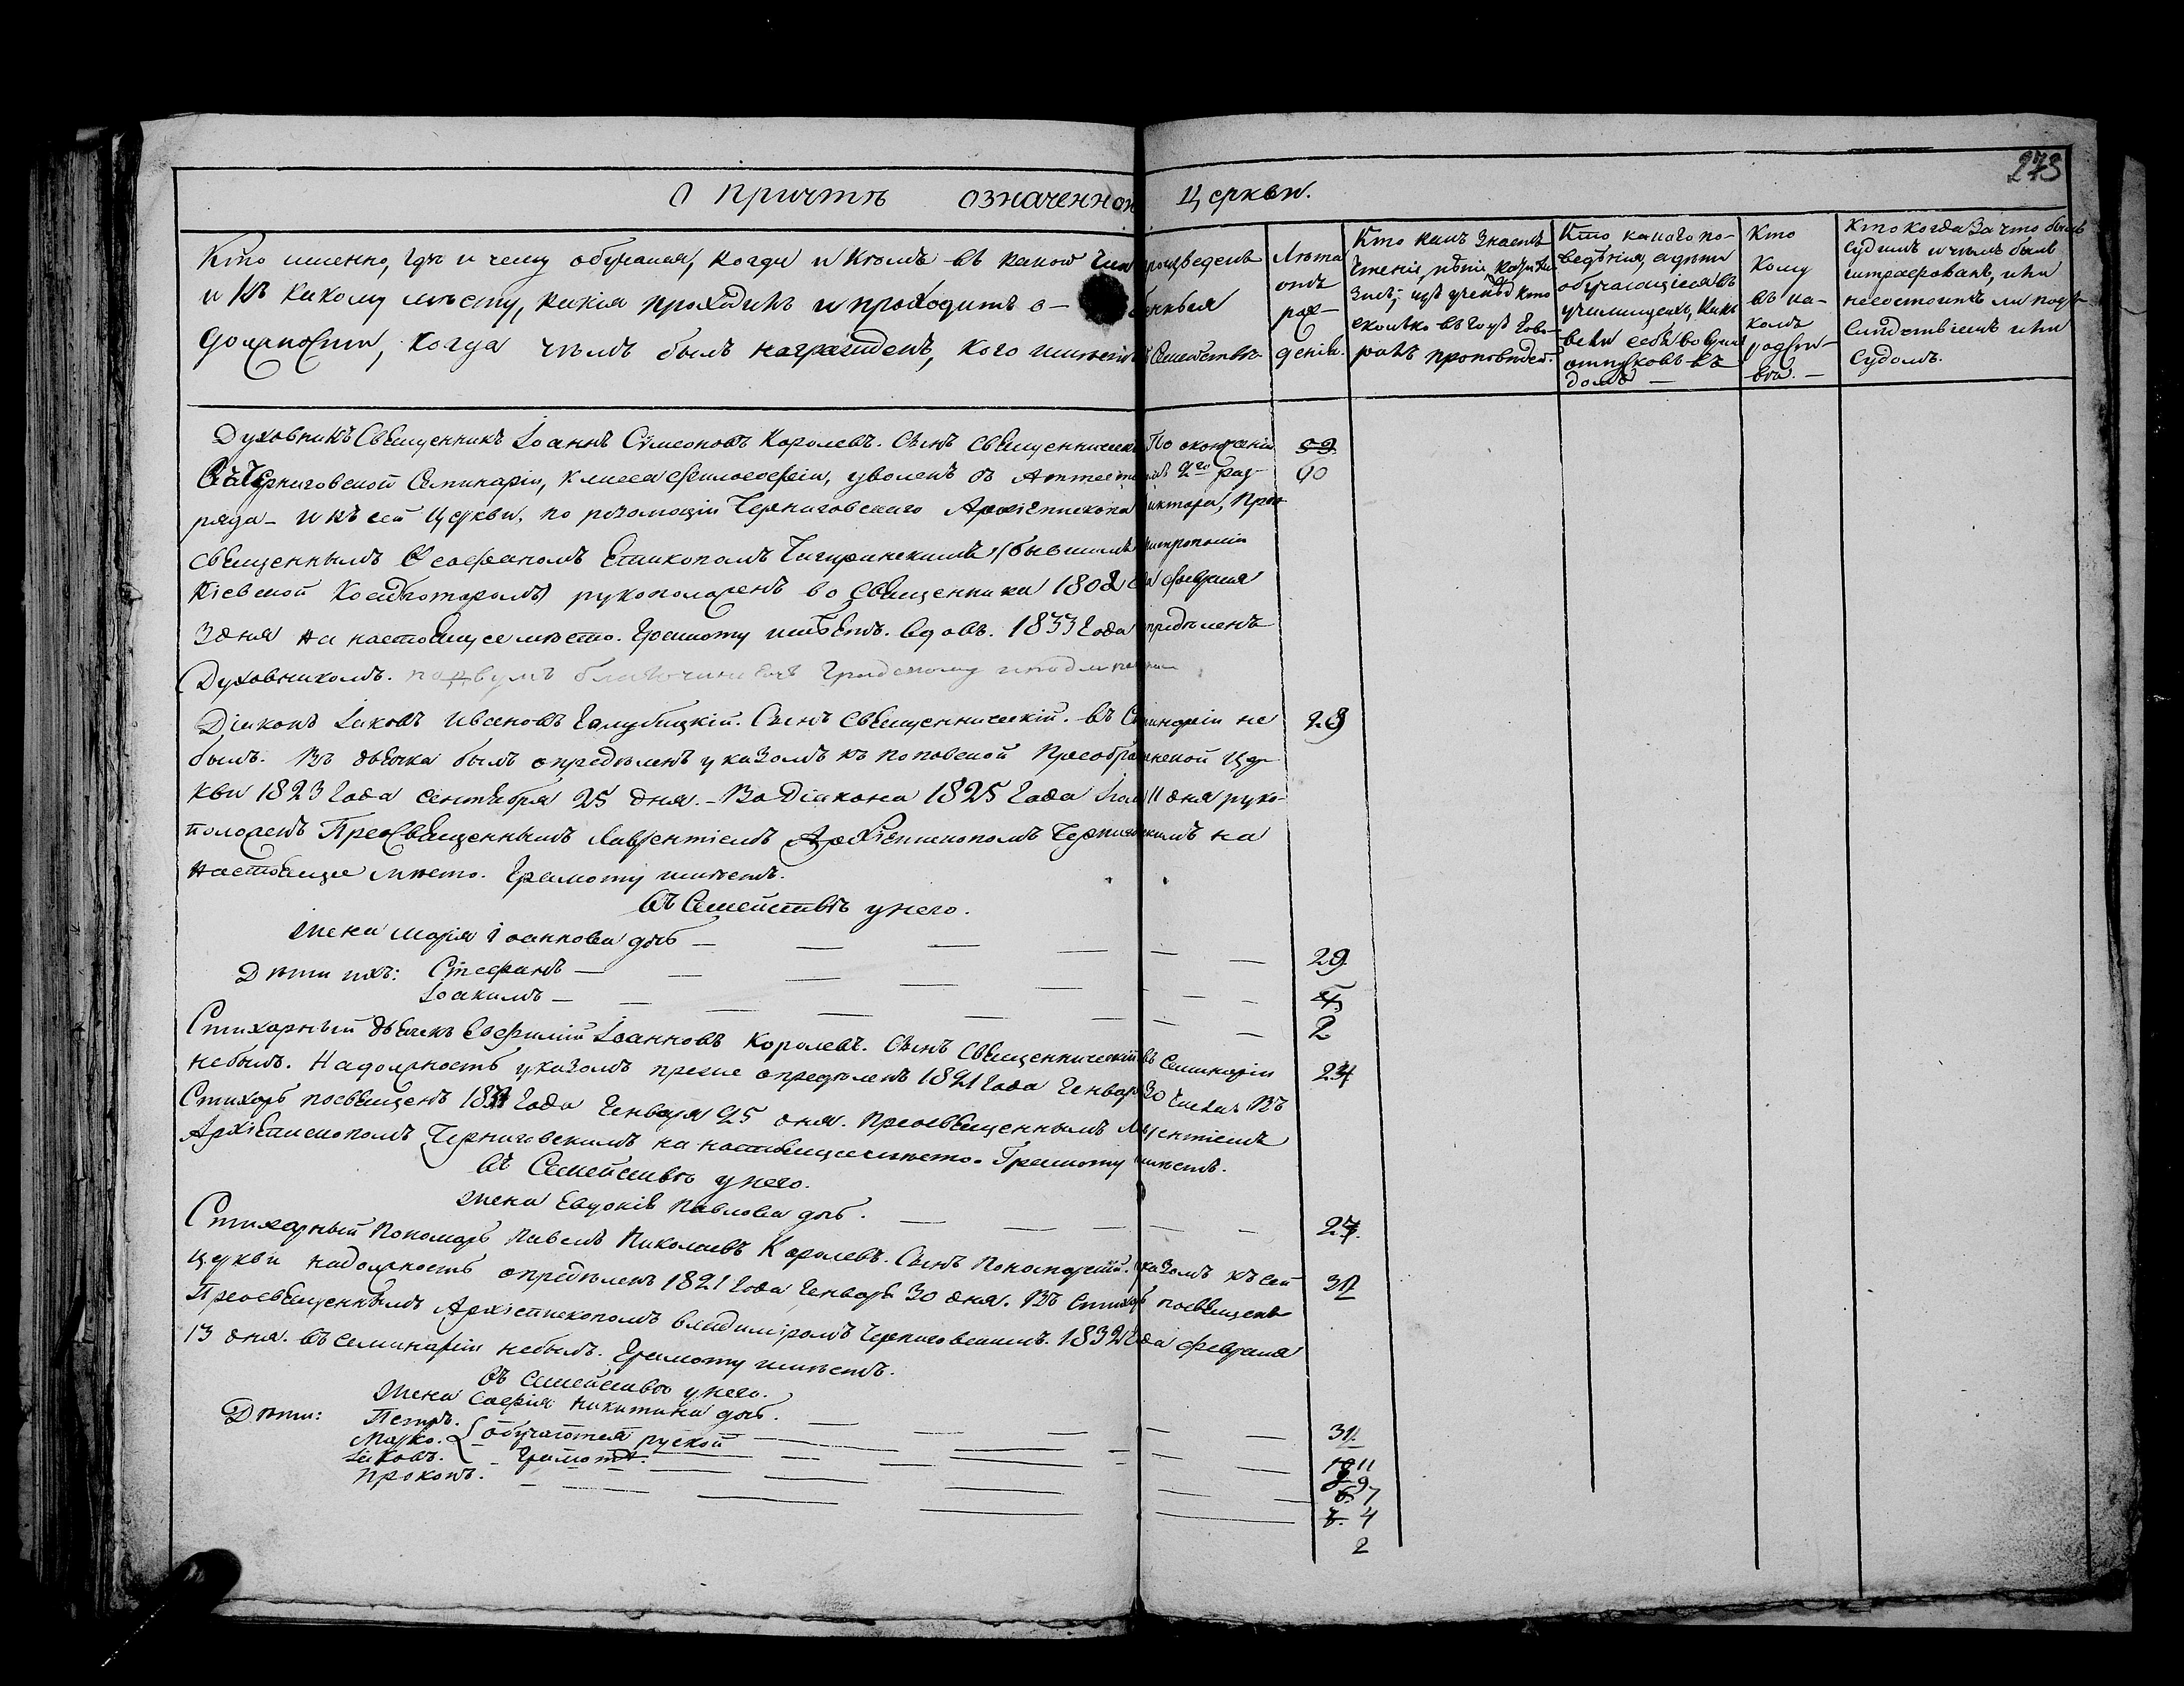 273
О причтѣ означенной Церкви.
Кто именно, гдѣ и чему обучался, когда и кѣмъ въ какой чин произведенъ
и къ какому мѣсту, какія проходилъ и проходитъ о-
должности, когда чѣмъ былъ награжденъ, кого имѣетъ въ Семействѣ.
Лѣта
отъ
рож-
денія.
Кто какъ знаетъ
чтеніе, пѣніе,
сколько въ годъ гово-
рилъ проповѣдей.
Кто какого по-
веденія, а дѣти
обучающіеся въ
училищахъ, какъ
вели себя во время
отпусковъ въ
домъ
Кто
кому
въ ка-
комъ
родст-
вѣ.
Кто когда за что былъ
судимъ и чѣмъ былъ
штрафованъ, или
несостоитъ ли подъ
слѣдствіемъ или
судомъ.
Духовникъ Священникъ Іоаннъ Сумеоновъ Королевъ. Сынъ Священническій. По окончаніи 59
Черниговской Семинаріи, класса философіи, уволенъ съ Аттестатомъ 2го раз- 60
ряда и къ сей Церкви, по резолюціи Черниговскаго Архіепископа Виктора, Прео-
священнымъ Ѳеофаномъ Епископомъ Чигиринскимъ, (бывшимъ митрополіи
Кіевской Коадъюторомъ) рукоположенъ во Священника 1802 года февраля
3 дня на настоящее мѣсто. Грамоту имѣетъ. Вдовъ. 1833 года опредѣленъ
Духовникомъ.
Діаконъ Іаковъ Ивановъ Голубицкій. Сынъ Священническій. Въ Семинаріи не 29
былъ. Въ дьячка былъ опредѣленъ указомъ къ Поповской Преображенской Цер-
кви 1823 года Сентября 25 дня. Во Діакона 1825 года 11 дня руко-
положенъ Преосвященнымъ Лаврентіемъ Архіепископомъ Черниговскимъ на
настоящее мѣсто. Грамоту имѣетъ.
Въ Семействѣ у него.
Жена Марія Іоаннова дочь — 29.
Дѣти ихъ: Стефанъ —
Іоакимъ — 2
Стихарный дьячекъ Евфимій Іоанновъ Королевъ. Сынъ Священническій въ Семинаріи 24
небылъ. На должность указомъ прежде опредѣленъ 1821 года Генваря 30 числа. Въ
Стихарь посвященъ года Генваря 25 дня. Преосвященнымъ Лаврентіемъ
Архіепископомъ Черниговскимъ на настоящее мѣсто. Грамоту имѣетъ.
Въ Семействѣ у него.
Жена Евдокія Павлова дочь. 27.
Стихарный Пономарь Павелъ Николаевъ Королевъ. Сынъ Пономарскій. Указомъ къ сей
церкви на должность опредѣленъ 1821 года Генваря 30 дня. Въ Стихарь посвященъ
Преосвященнымъ Архіепископомъ Владиміромъ Черниговскимъ. 1832 года февраля
13 дня. Въ Семинаріи небылъ. Грамоту имѣетъ.
Въ Семействѣ у него.
Жена Софія Никитина дочь. 31.
Дѣти: Петръ. 11
Марко. обучаются руской 9
Іаковъ. Грамотѣ. 7
Прокопъ. 4
2